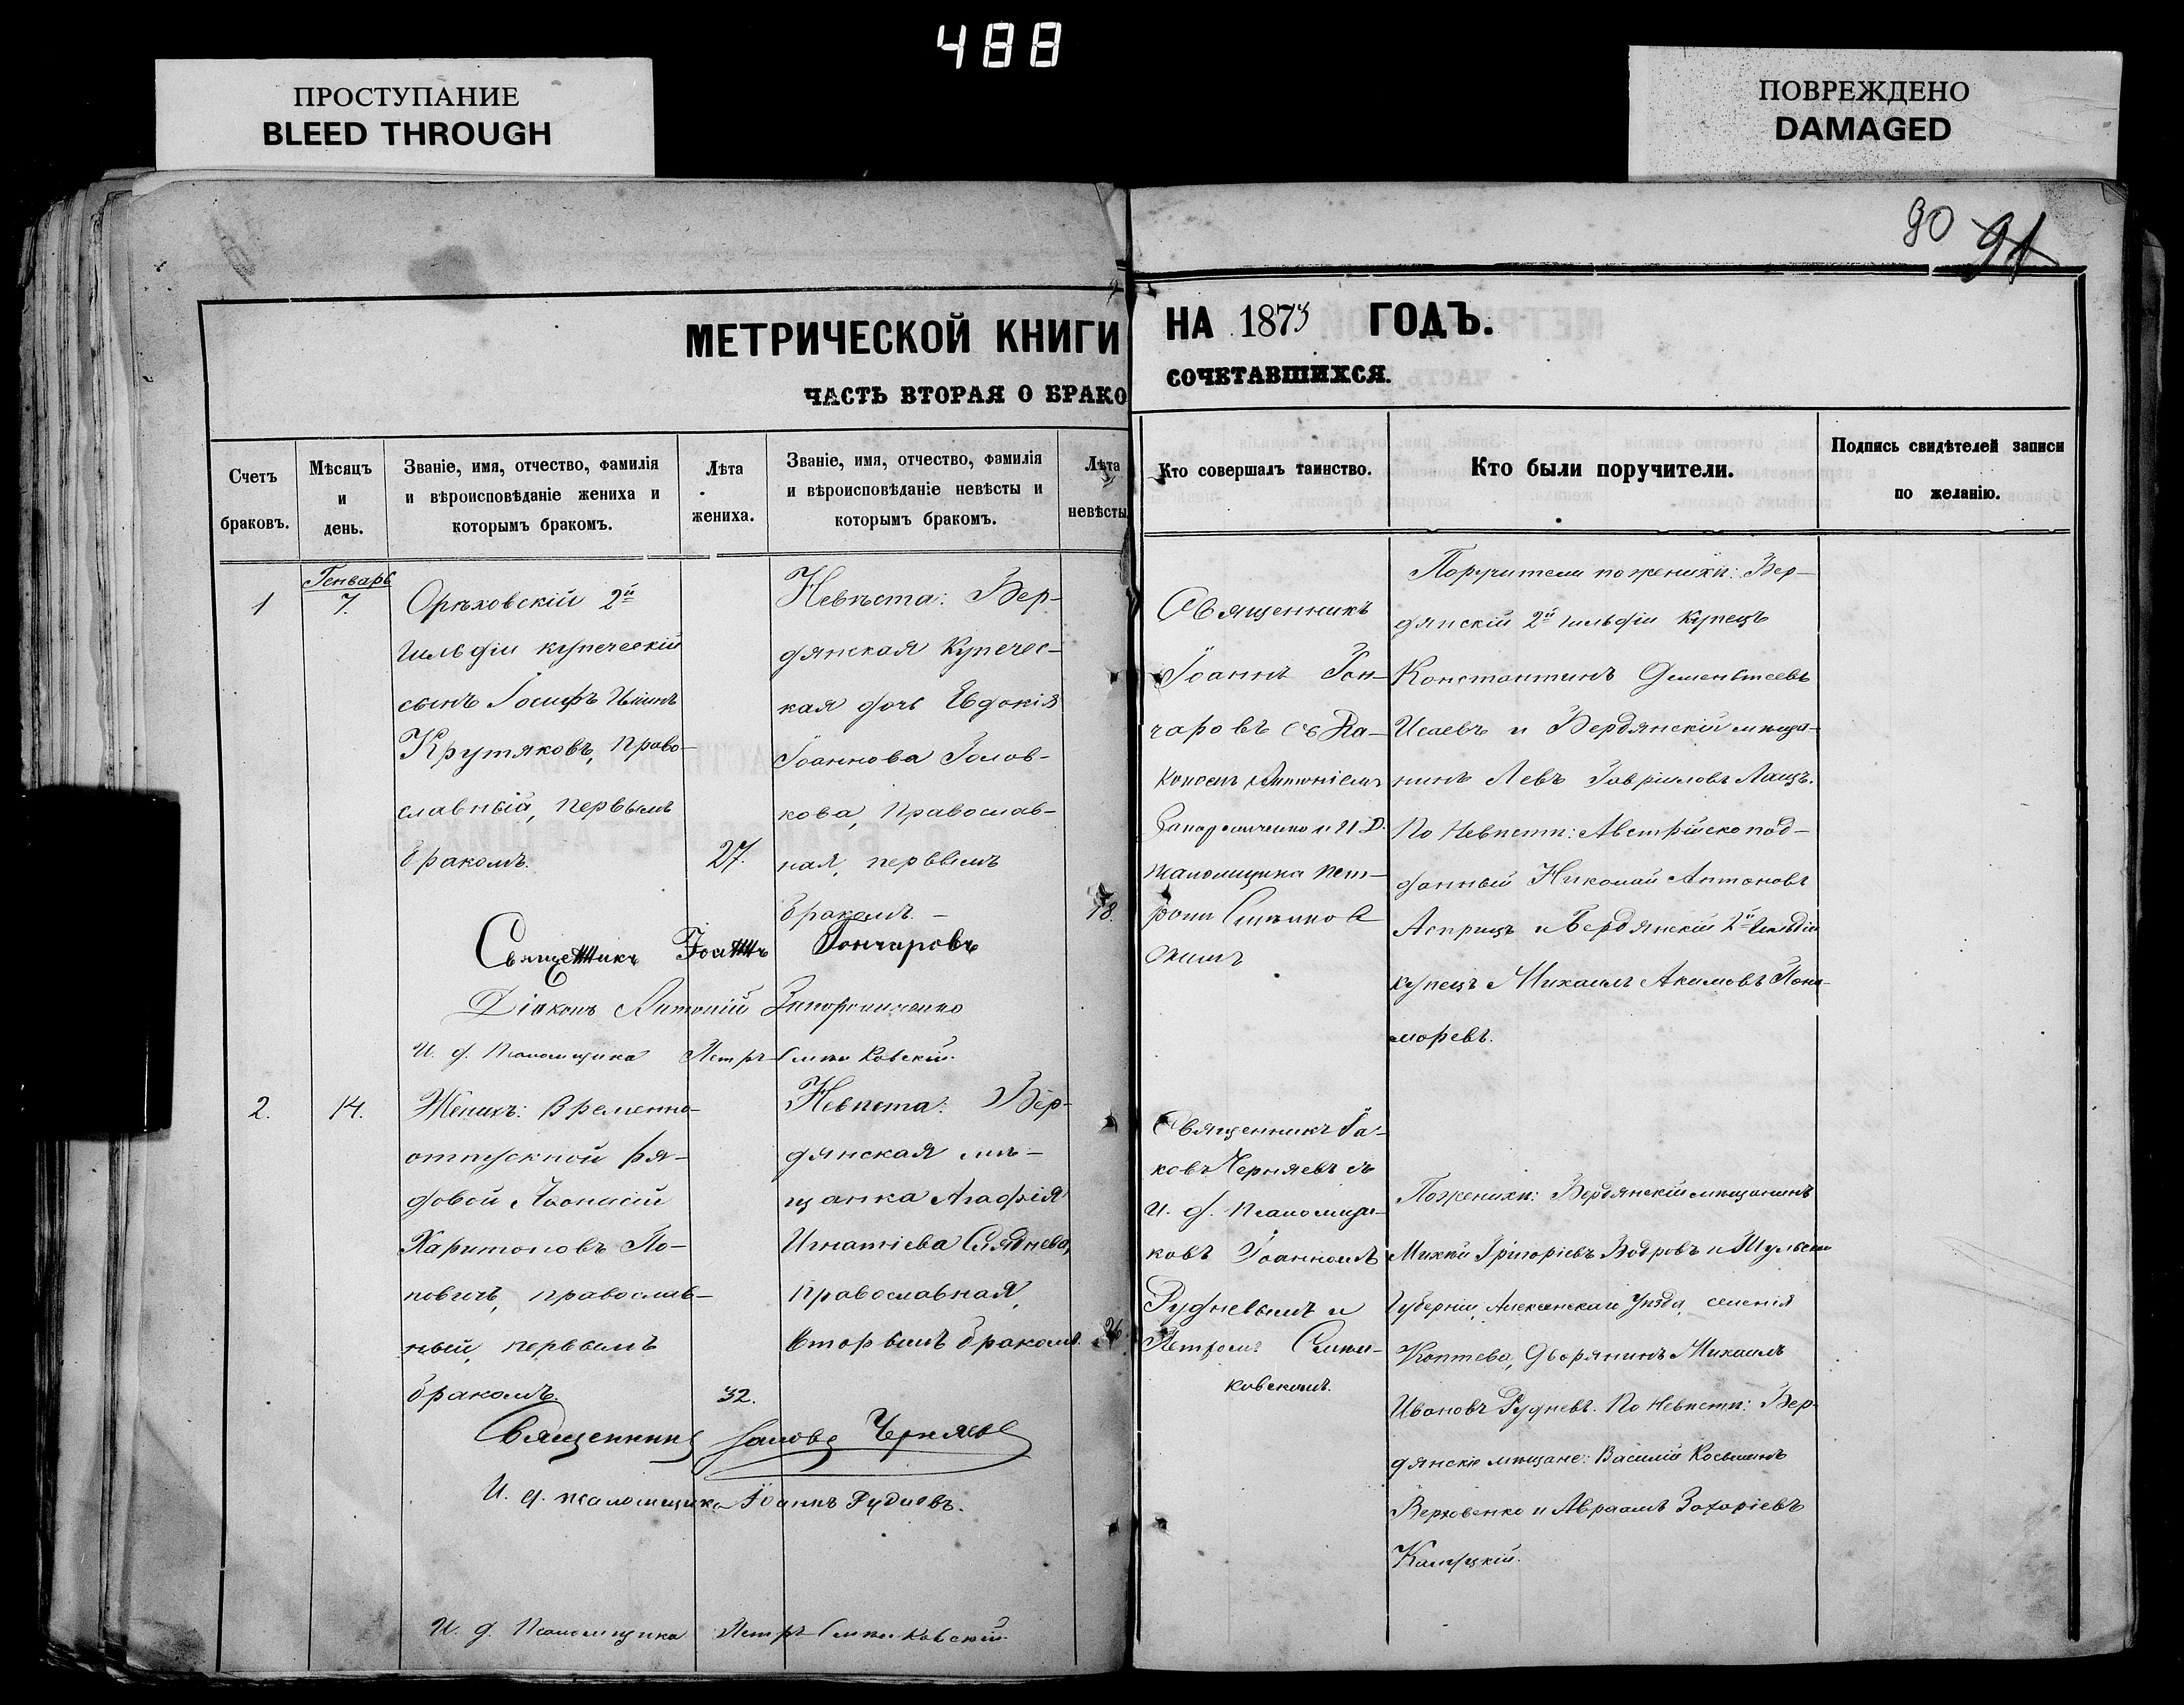 488
ПРОСТУПАНИЕ
BLEED THROUGH
ПОВРЕЖДЕНО
DAMAGED
90 91
МЕТРИЧЕСКОЙ КНИГИ НА 1873 ГОДЪ.
ЧАСТЬ ВТОРАЯ О БРАКОСОЧЕТАВШИХСЯ.
Счетъ браковъ.
Мѣсяцъ и день.
Званіе, имя, отчество, фамилія и вѣроисповѣданіе жениха и которымъ бракомъ.
Лѣта жениха.
Званіе, имя, отчество, фамилія и вѣроисповѣданіе невѣсты и которымъ бракомъ.
Лѣта невѣсты
Кто совершалъ таинство.
Кто были поручители.
Подпись свидѣтелей записи по желанію.
1
Генварь
7.
Орѣховскій 2й
гильдіи купеческій
сынъ Іосифъ
Крутяковъ, право-
славный, первымъ
бракомъ.
27.
Невѣста: Бер-
дянская купечес-
кая дочь Евдокія
Іоаннова Голов-
кова, православ-
ная, первымъ
бракомъ. –
18.
Священникъ
Іоаннъ Гон-
чаровъ съ Діа-
кономъ Антоніемъ
и И. Д.
псаломщика Пет-
ромъ
Поручители по женихѣ: Бер-
дянскій 2й гильдіи купецъ
Константинъ Дементьевъ
Исаевъ и Бердянскій мѣща-
нинъ Левъ Гавріиловъ Лащъ.
По невѣстѣ: Австрійско под-
данный Николай Антоновъ
и Бердянскій 2й гильдіи
купецъ Михаилъ Акимовъ Поно-
моревъ.
Священникъ Іоаннъ Гончаровъ
Діаконъ Антоній
И. д. Псаломщика Петръ
2.
14.
Женихъ: Временно-
отпускной ря-
довой Аѳанасій
Харитоновъ По-
повичъ, православ-
ный, первымъ
бракомъ.
32.
Невѣста: Бер-
дянская мѣ-
щанка Агафія
Игнатіева
православная,
вторымъ бракомъ.
26.
Священникъ Іа-
ковъ Черняевъ съ
И. д. псаломщи-
ковъ Іоанномъ
Рудневымъ и
Петромъ
ковскимъ.
По женихѣ: Бердянскій мѣщанинъ
Григоріевъ Бобровъ и Тульской
Губерніи, Алексинскаго Уѣзда, селенія
Коптева, Дворянинъ Михаилъ
Ивановъ Рудневъ. По невѣстѣ: Бер-
дянскіе мѣщане: Василій Косьминъ
Верховенко и Авраамъ Захаріевъ
Священникъ Іаковъ Черняевъ
И. д. псаломщика Іоаннъ Рудневъ.
И. д. Псаломщика Петръ